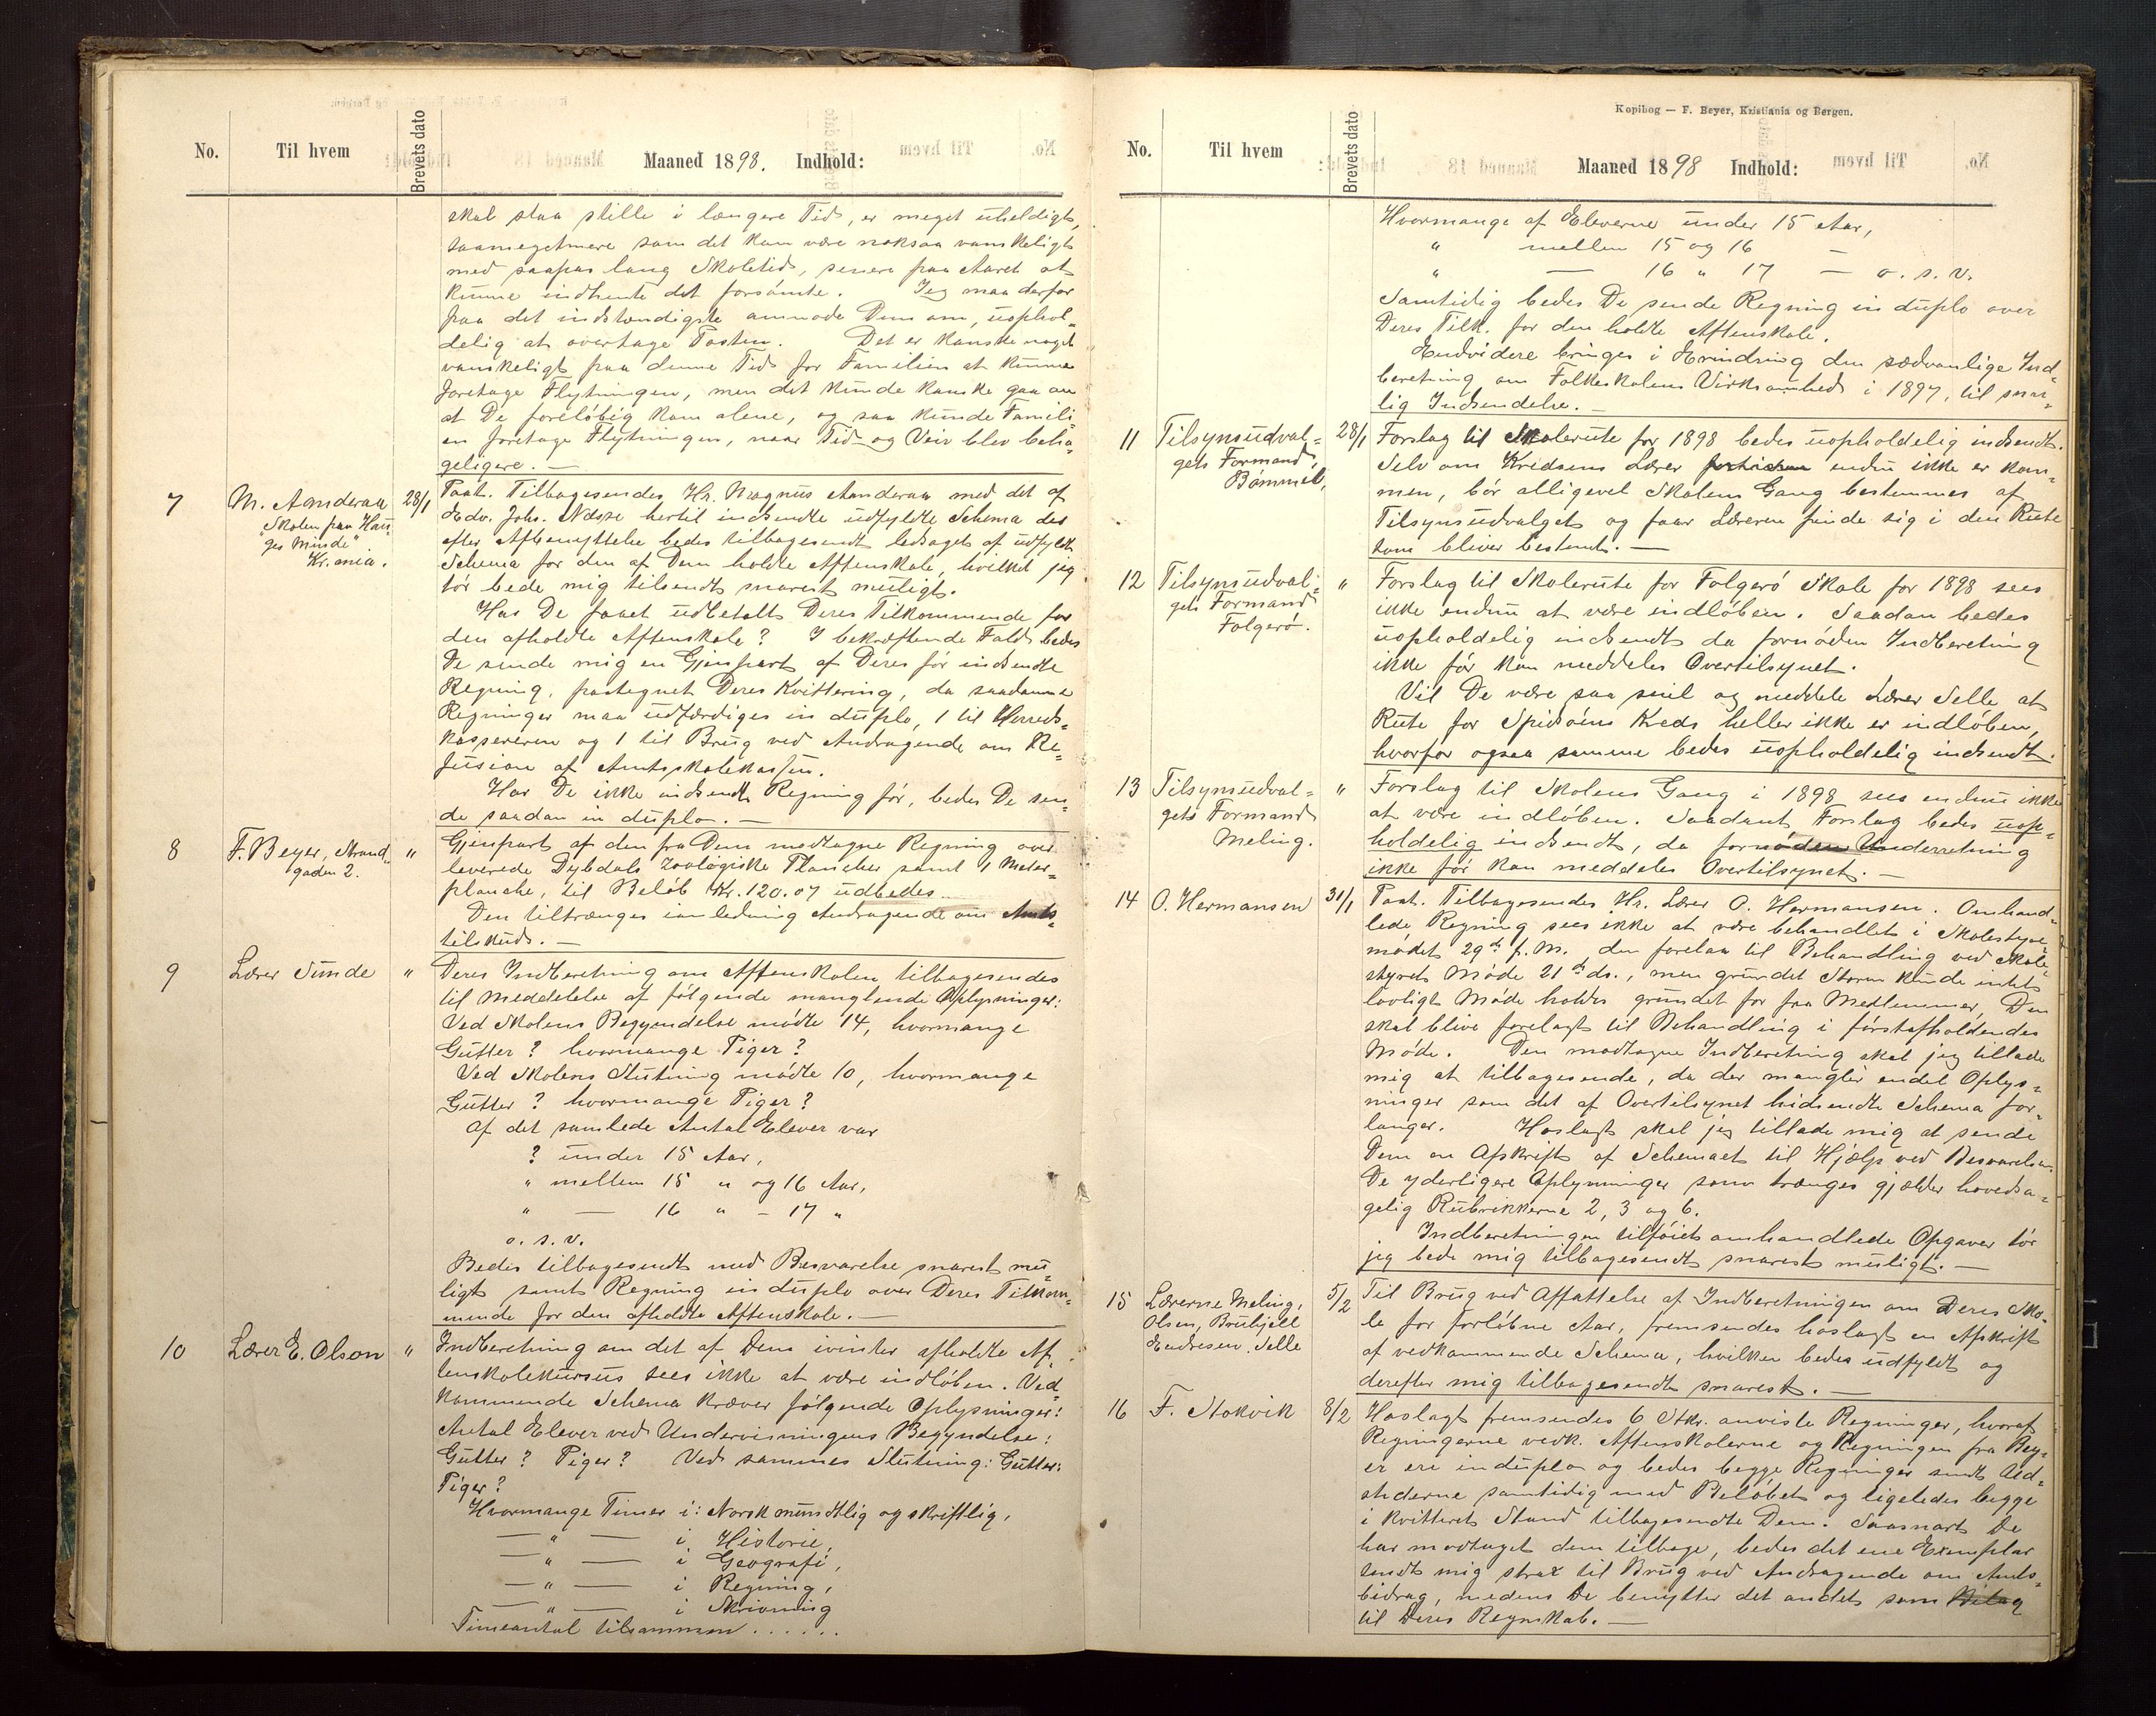 No. Til hvem Brevets dato Maaned 1898. Indhold:
skal staa stille i længere Tid, er meget uheldigt,
saameget mere som det kan være noksaa vanskeligt
med saapas lang Skoletid, senere paa Aaret at
kunne indhente det forsömte. Jeg maa derfor
paa det indstændigste anmode Dem om, uophol-
delig at overtage Posten. Det er kanske noget
vanskeligt paa denne Tid for Familien at kunne
foretage Flytningen, men det kunde kanske gaa an
at De foreløbig kom alene, og saa kunde Famili-
en foretage Flytningen, naar Tid og Veir blev beha-
geligere. —
7 M. Aanderaa 28/1 Paat. Tilbagesendes Hr. Magnus Aanderaa med det af
"Skolen paa Hau- Edv. Johs. Næsse hertil indsendte udfyldte Schema der
ges Minde" efter Afbenyttelse bedes tilbagesendt ledsaget af udfyldt
Kr.ania. Schema for den af Dem holdte Aftenskole, hvilket jeg
tör bede mig tilsendt snarest muligt.
Har De faaet udbetalt Deres Tilkommende for
den afholdte Aftenskole? I bekræftende Fald bedes
De sende mig en Gjenpart af Deres för indsendte
Regning, paategnet Deres Kvittering, da saadanne
Regninger maa udfærdiges in duplo, 1 til Herreds-
kassereren og 1 til Brug ved Andragende om Re-
fusion af Amtsskolekassen.
Har De ikke indsendt Regning för, bedes De sen-
de saadan in duplo. —
8 F. Beyer, Strand- " Gjenpart af den fra Dem modtagne Regning over
gaden 2. leverede Dybdals zoologiske Plancher samt 1 Meter-
planche, til Belöb Kr. 120.07 udbedes.
Den tiltrænges i anledning Andragende om Amts-
tilskud. —
9 Lærer Sunde " Deres Indberetning om Aftenskolen tilbagesendes
til Meddelelse af fölgende manglende Oplysninger:
Ved Skolens Begyndelse mödte 14, hvormange
Gutter? hvormange Piger?
Ved Skolens Slutning mödte 10, hvormange
Gutter? hvormange Piger?
Af det samlede Antal Elever var
? under 15 Aar,
" mellem 15 " og 16 Aar,
" — 16 " – 17 "
o. s. v.
Bedes tilbagesendt med Besvarelse snarest mu-
ligt samt Regning in duplo over Deres Tilkom-
mende for den afholdte Aftenskole. —
10 Lærer E. Olson " Indberetning om det af Dem ivinter afholdte Af-
tenskolekursus sees ikke at være indlöben. Ved-
kommende Schema kræver fölgende Oplysninger:
Antal Elever ved Undervisningens Begyndelse:
Gutter? Piger? Ved sammes Slutning: Gutter:
Piger?
Hvormange Timer i: Norsk mundtlig og skriftlig,
— " — i Historie,
— " — i Geografi,
— " — i Regning,
— " — i Skrivning
Timeantal tilsammen ......
Kopibog — F. Beyer, Kristiania og Bergen.
No. Til hvem Brevets dato Maaned 1898 Indhold:
Hvormange af Eleverne under 15 Aar,
" mellem 15 og 16 —
" — 16 " 17 — o. s. v.
Samtidig bedes De sende Regning in duplo over
Deres Tilk. for den holdte Aftenskole.
Endvidere bringes i Erindring den sædvanlige Ind-
beretning om Folkeskolens Virksomhed i 1897, til snar-
lig Indsendelse. —
11 Tilsynsudval- 28/1 Forslag til Skolerute for 1898 bedes uopholdelig indsendt.
gets Formand, Selv om Kredsens Lærer endnu ikke er kom-
Bömmel, men, bör alligevel Skolens Gang bestemmes af
Tilsynsudvalget og faar Læreren finde sig i den Rute
som bliver bestemt. —
12 Tilsynsudval- " Forslag til Skolerute for Folgerö Skole for 1898 sees
gets Formand ikke endnu at være indlöben. Saadan bedes
Folgerö. uopholdelig indsendt da fornöden Indberetning
ikke för kan meddeles Overtilsynet.
Vil De være saa snil og meddele Lærer Selle at
Rute for Spidsöens Kreds heller ikke er indlöben,
hvorfor ogsaa samme bedes uopholdelig indsendt.
13 Tilsynsudval- " Forslag til Skolens Gang i 1898 sees endnu ikke
gets Formand at være indlöben. Saadant Forslag bedes uop-
Meling. holdelig indsendt, da fornöden Underretning
ikke för kan meddeles Overtilsynet. —
14 O. Hermansen 31/1 Paat. Tilbagesendes Hr. Lærer O. Hermansen. Omhand-
lede Regning sees ikke at være behandlet i Skolestyre-
mödet 29de f.M. den forelaa til Behandling ved Skole-
styrets Möde 21de ds., men grundet Storm kunde intet
lovligt Möde holdes grundet for faa Medlemmer. Den
skal blive forelagt til Behandling i förstafholdendes
Möde. Den modtagne Indberetning skal jeg tillade
mig at tilbagesende, da der mangler endel Oplys-
ninger som det af Overtilsynet hidsendte Schema for-
langer. Hoslagt skal jeg tillade mig at sende
Dem en Afskrift af Schemaet til Hjælp ved Besvarelsen.
De yderligere Oplysninger som trænges gjælder hovedsa-
gelig Rubrikkerne 2, 3 og 6.
Indberetningen tilföiet omhandlede Opgaver tör
jeg bede mig tilbagesendt snarest muligt. —
15 Lærerne Meling, 5/2 Til Brug ved Affattelse af Indberetningen om Deres Sko-
Olsen, Brubjell le for forlöbne Aar, fremsendes hoslagt en Afskrift
Endresen, Selle af vedkommende Schema, hvilken bedes udfyldt og
derefter mig tilbagesendt snarest. —
16 F. Stokvik 8/2 Hoslagt fremsendes 6 Stkr. anviste Regninger, hvoraf
Regningerne vedk. Aftenskolerne og Regningen fra Bey-
er ere in duplo og bedes begge Regninger sendt Ved-
stederne samtidig med Belöbet og ligeledes begge
i kvitteret Stand tilbagesendte Dem. Saasnart De
har modtaget dem tilbage, bedes det ene Exemplar
sendt mig strax til Brug ved Andragende om Amts-
bidrag, medens De benytter det andet som Bilag
til Deres Regnskab. —